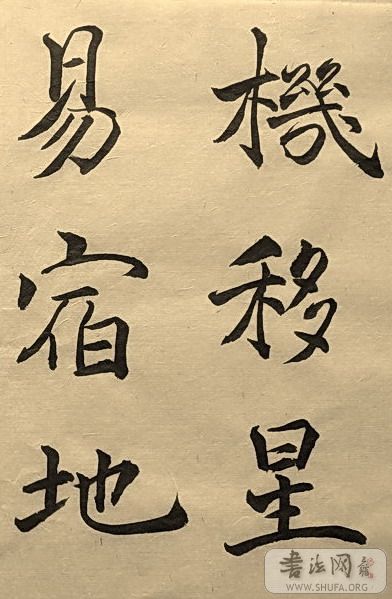 機移星
易宿地
書法网
WWW.SHUFA.ORG